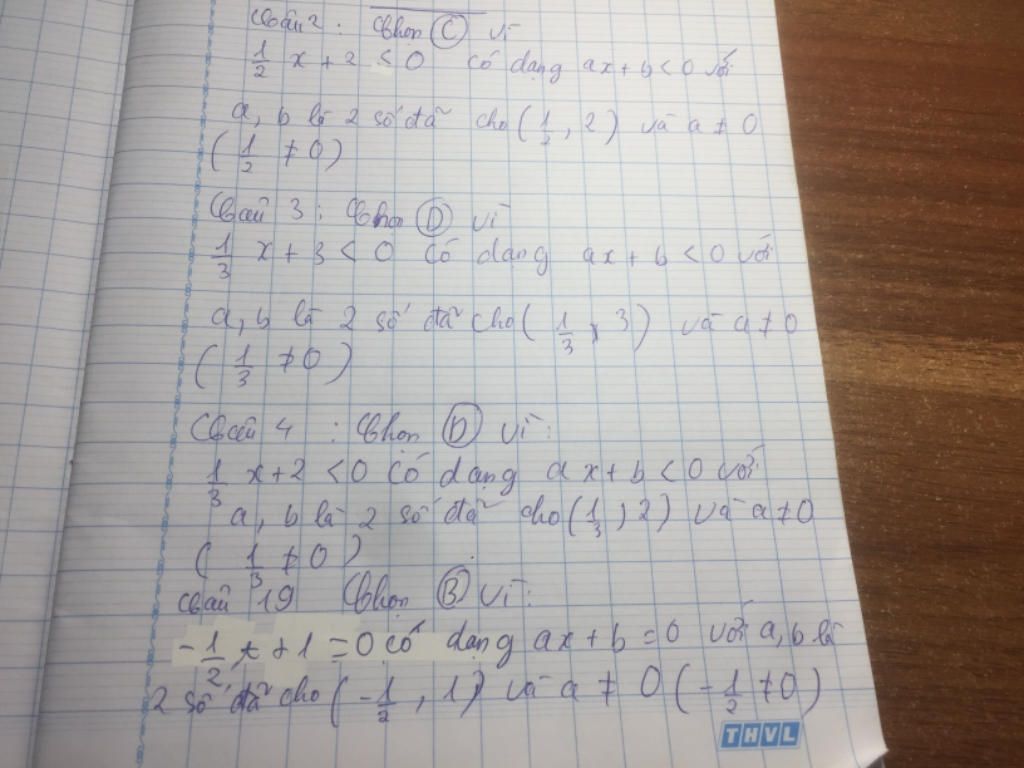 Câu 2 : Chọn C vì
1/2 x + 2 < 0 có dạng ax + b < 0 với
a, b là 2 số đã cho ( 1/2 , 2 ) và a ≠ 0
( 1/2 ≠ 0 )
Câu 3 : Chọn D vì
1/3 x + 3 < 0 có dạng ax + b < 0 với
a, b là 2 số đã cho ( 1/3 , 3 ) và a ≠ 0
( 1/3 ≠ 0 )
Câu 4 : Chọn D vì :
1/3 x + 2 < 0 có dạng ax + b < 0 với
a, b là 2 số đã cho ( 1/3 , 2 ) và a ≠ 0
( 1/3 ≠ 0 )
Câu 19 Chọn B vì :
- 1/2 x + 1 = 0 có dạng ax + b = 0 với a, b là
2 số đã cho ( - 1/2 , 1 ) và a ≠ 0 ( - 1/2 ≠ 0 )
THVL